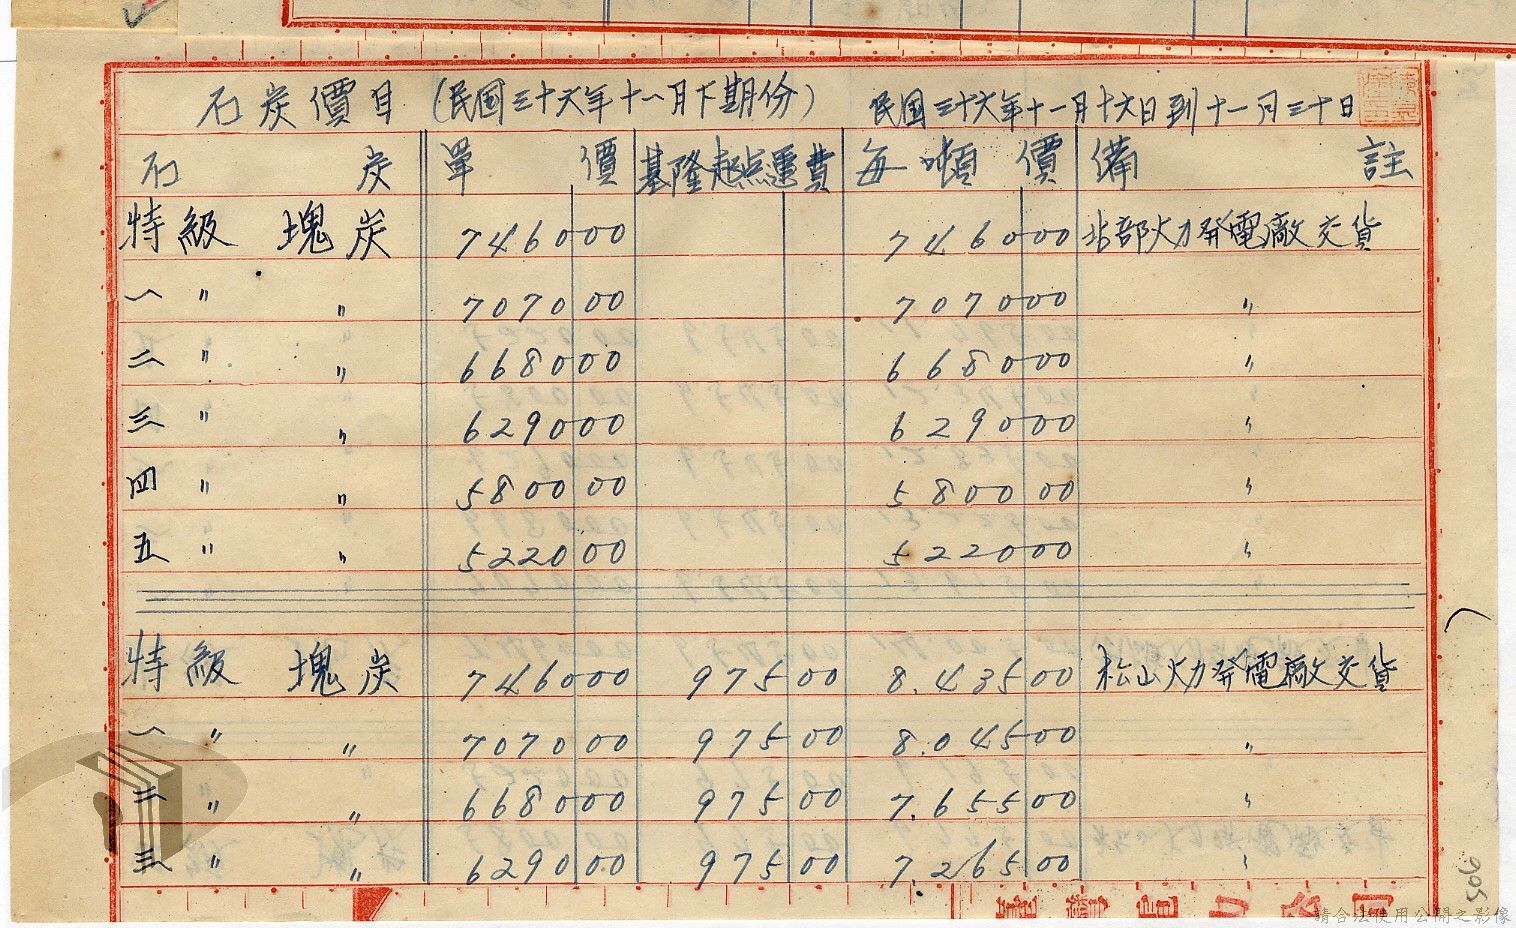 石炭價目(民國三十六年十一月下期份) 民國三十六年十一月十六日到十一月三十日
石炭 單價 基隆起点運費 每噸價 備註
特級 塊炭 746000 746000 北部火力發電廠交貨
一 〃 〃 707000 707000 〃
二 〃 〃 668000 668000 〃
三 〃 〃 629000 629000 〃
四 〃 〃 580000 580000 〃
五 〃 〃 522000 522000 〃
特級 塊炭 746000 97500 8.43500 松山火力發電廠交貨
一 〃 〃 707000 97500 8.04500 〃
二 〃 〃 668000 97500 7.65500 〃
三 〃 〃 629000 97500 7.26500 〃
905
請合法使用公開之影像